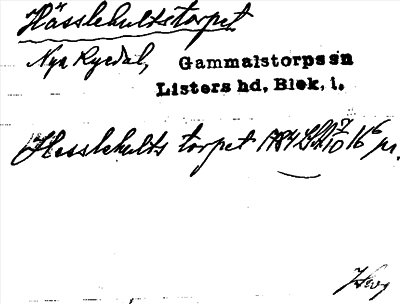 Hässlehultstorpet
Nya Ryedal, Gammalstorps sn
Listers hd, Blek, l.
Hesslehults torpet 1784